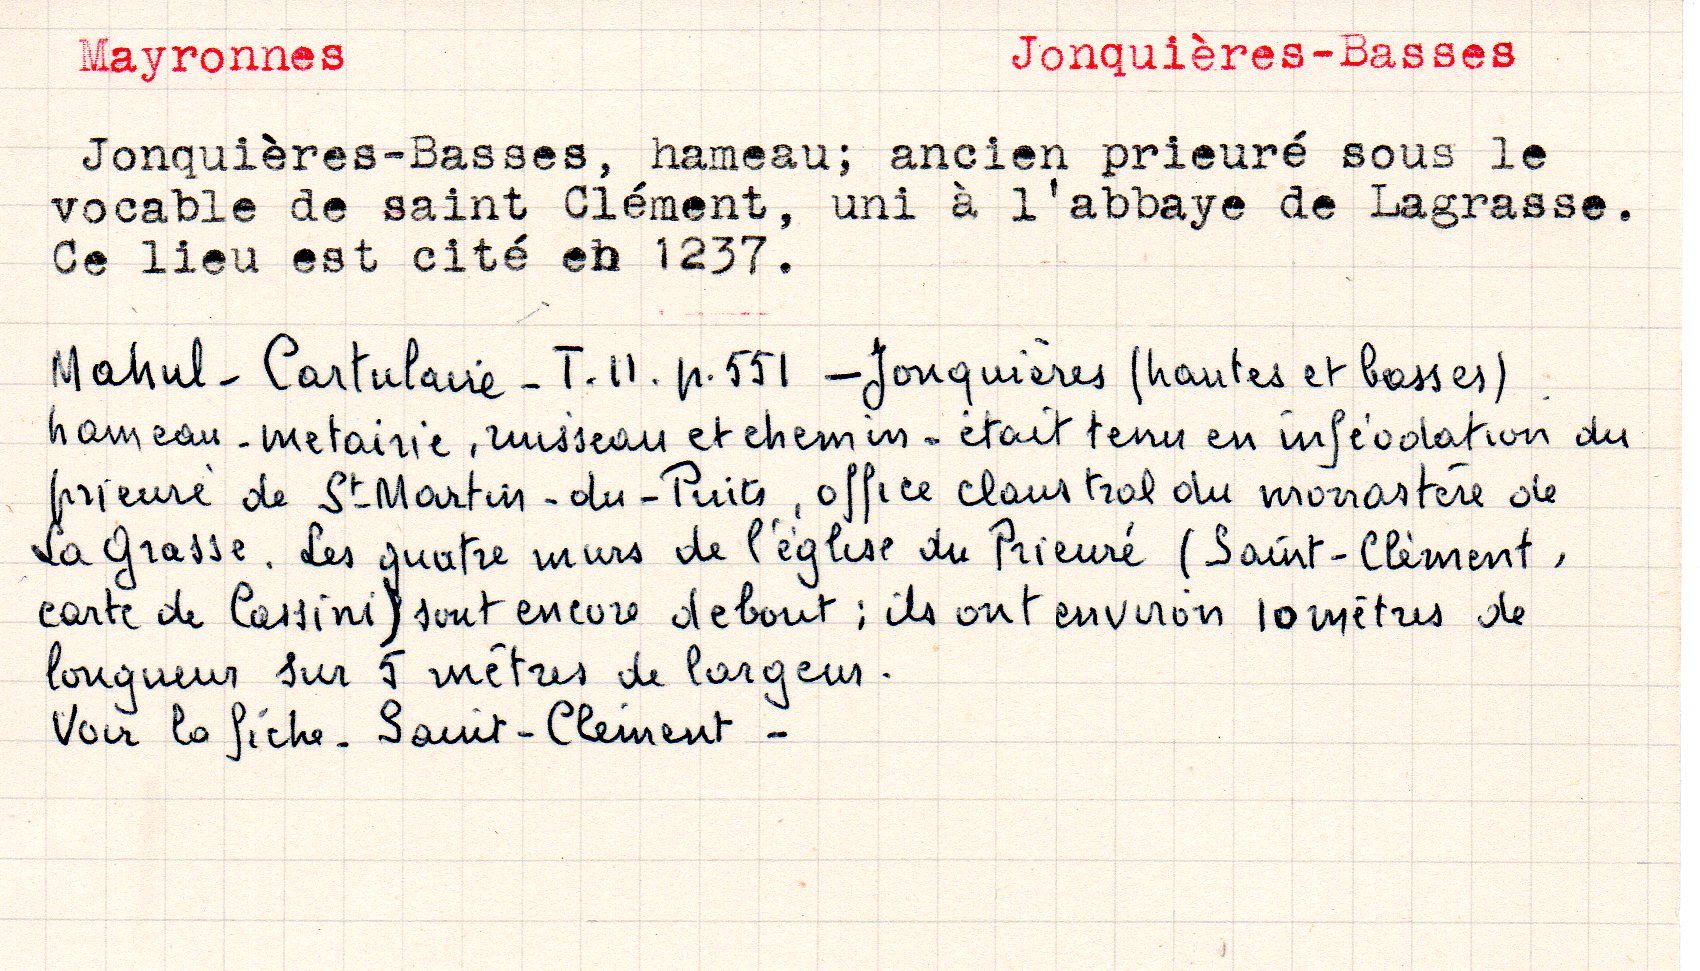 Mayronnes Jonquières-Basses
Jonquières-Basses, hameau; ancien prieuré sous le
vocable de saint Clément, uni à l'abbaye de Lagrasse.
Ce lieu est cité en 1237.
Mahul - Cartulaire - T. II. p. 551 - Jonquières (hautes et basses)
hameau - metairie, ruisseau et chemin - était tenu en inféodation du
prieuré de St-Martin-du-Puits, office claustral du monastère de
La Grasse. Les quatre murs de l'église du Prieuré (Saint-Clément,
carte de Cassini) sont encore debout ; ils ont environ 10 mètres de
longueur sur 5 mètres de largeur.
Voir la fiche - Saint-Clément -